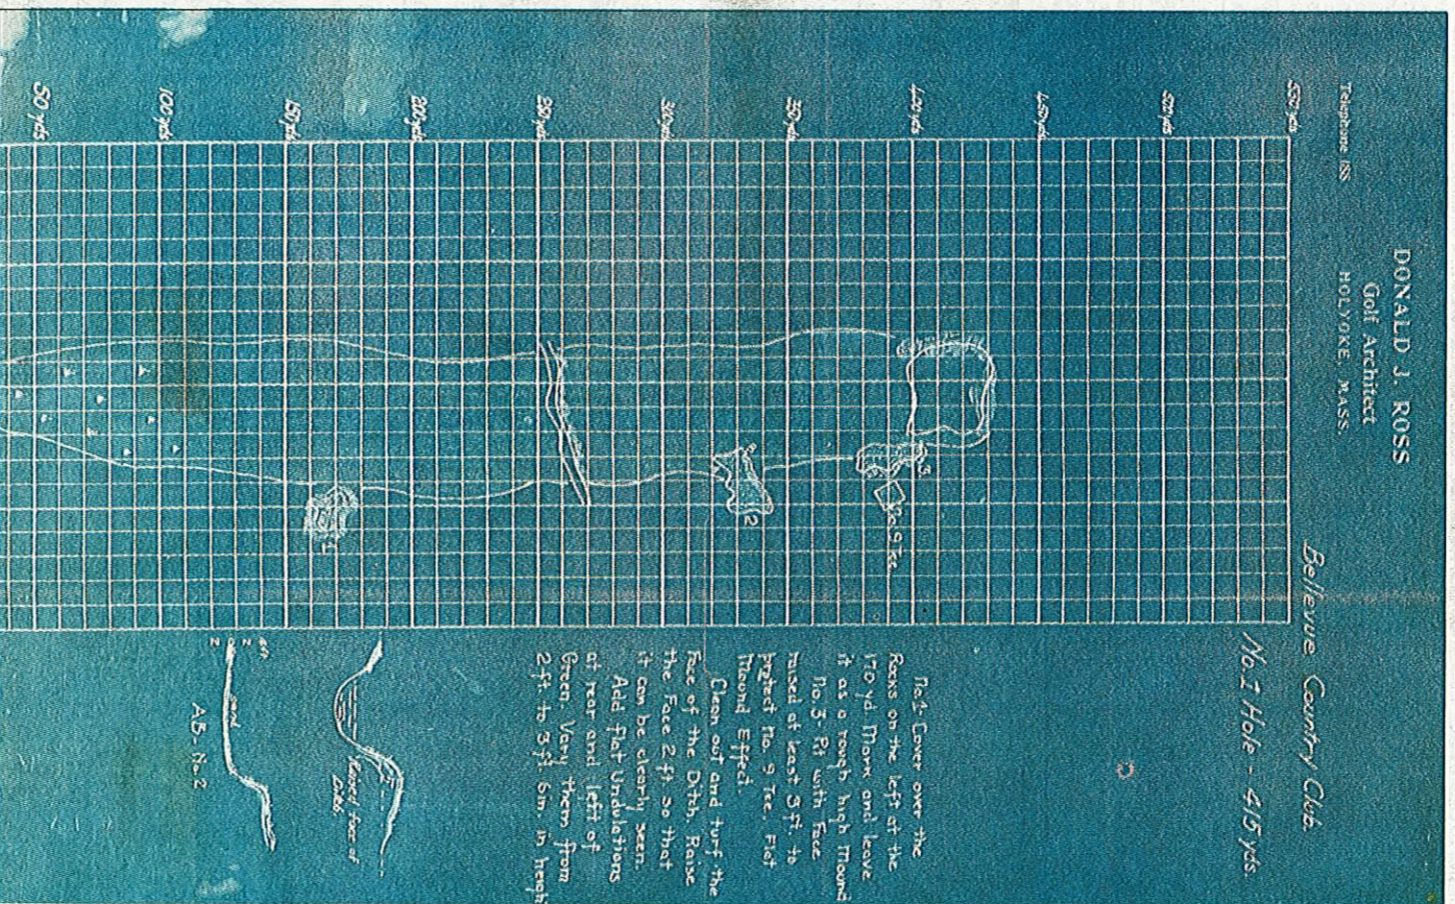 Telephone 188
DONALD J. ROSS
Golf Architect
HOLYOKE, MASS.
Bellevue Country Club.
No.1 Hole - 415 yds.
550 yds
500 yds
450 yds
400 yds
350 yds
300 yds
250 yds
200 yds
150 yds
100 yds
50 yds
3
No.9 Tee
2
1
No.1- Cover over the
Rocks on the left at the
170 yd. Mark and leave
it as a rough high Mound
No.3- Pit with Face
raised at least 3 ft. to
protect No. 9 Tee. Flat
Mound Effect.
Clean out and turf the
Face of the Ditch. Raise
the Face 2 ft. so that
it can be clearly seen.
Add flat Undulations
at rear and left of
Green. Vary them from
2 ft. to 3 ft. 6 in. in height
Raised face of
sand
AB- No.2